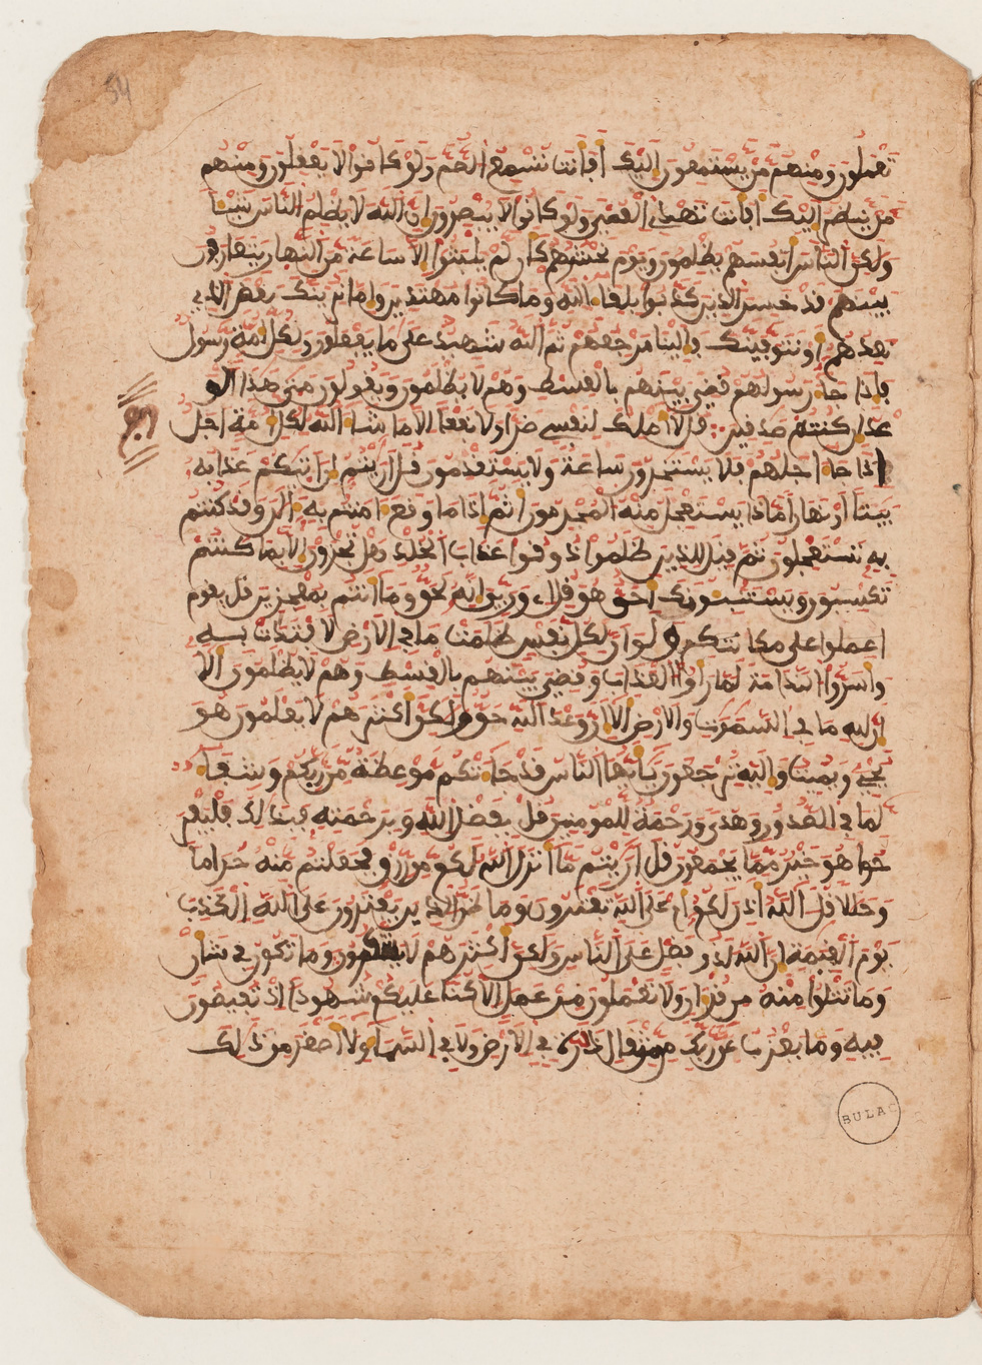 54
تعملون ومنهم من يستمعون اليك افانت تسمع الصم ولو كانوا لا يعقلون ومنهم
من ينظر اليك افانت تهدي العمي ولو كانوا لا يبصرون ان الله لا يظلم الناس شيئا
ولكن الناس انفسهم يظلمون ويوم نحشرهم كان لم يلبثوا الا ساعة من النهار يتعارفون
بينهم قد خسر الذين كذبوا بلقاء الله وما كانوا مهتدين واما نرينك بعض الذي
نعدهم او نتوفينك فالينا مرجعهم ثم الله شهيد على ما يفعلون ولكل امة رسول
فاذا جاء رسولهم قضي بينهم بالقسط وهم لا يظلمون ويقولون متى هذا الو
عد ان كنتم صدقين قل لا املك لنفسي ضرا ولا نفعا الا ما شاء الله لكل امة اجل
اذا جاء اجلهم فلا يستخرون ساعة ولا يستقدمون قل اريتم ان اتيكم عذابه
بيتا او نهارا ماذا يستعجل منه المجرمون اثم اذا ما وقع امنتم به الن وقد كنتم
به تستعجلون ثم قيل للذين ظلموا ذوقوا عذاب الخلد هل تجزون الا بما كنتم
تكسبون ويستنبونك احق هو قل اي وربي انه لحق وما انتم بمعجزين قل يقوم
اعملوا على مكانتكم ولو ان لكل نفس ظلمت ما في الارض لافتدت به
واسروا الندامة لما راوا العذاب وقضي بينهم بالقسط وهم لا يظلمون الا
ان لله ما في السموت والارض الا ان وعد الله حق ولكن اكثرهم لا يعلمون هو
يحي ويميت واليه ترجعون يايها الناس قد جاءتكم موعظة من ربكم وشفاء
لما في الصدور وهدى ورحمة للمومنين قل بفضل الله وبرحمته فبذلك فليفر
حوا هو خير مما يجمعون قل اريتم ما انزل الله لكم من رزق فجعلتم منه حراما
وحللا قل الله اذن لكم ام على الله تفترون وما ظن الذين يفترون على الله الكذب
يوم القيمة ان الله لذو فضل على الناس ولكن اكثرهم لا يشكرون وما تكون في شان
وما تتلوا منه من قران ولا تعملون من عمل الا كنا عليكم شهودا اذ تفيضون
فيه وما يعزب عن ربك من مثقال ذرة في الارض ولا في السماء ولا اصغر من ذلك
BULAC